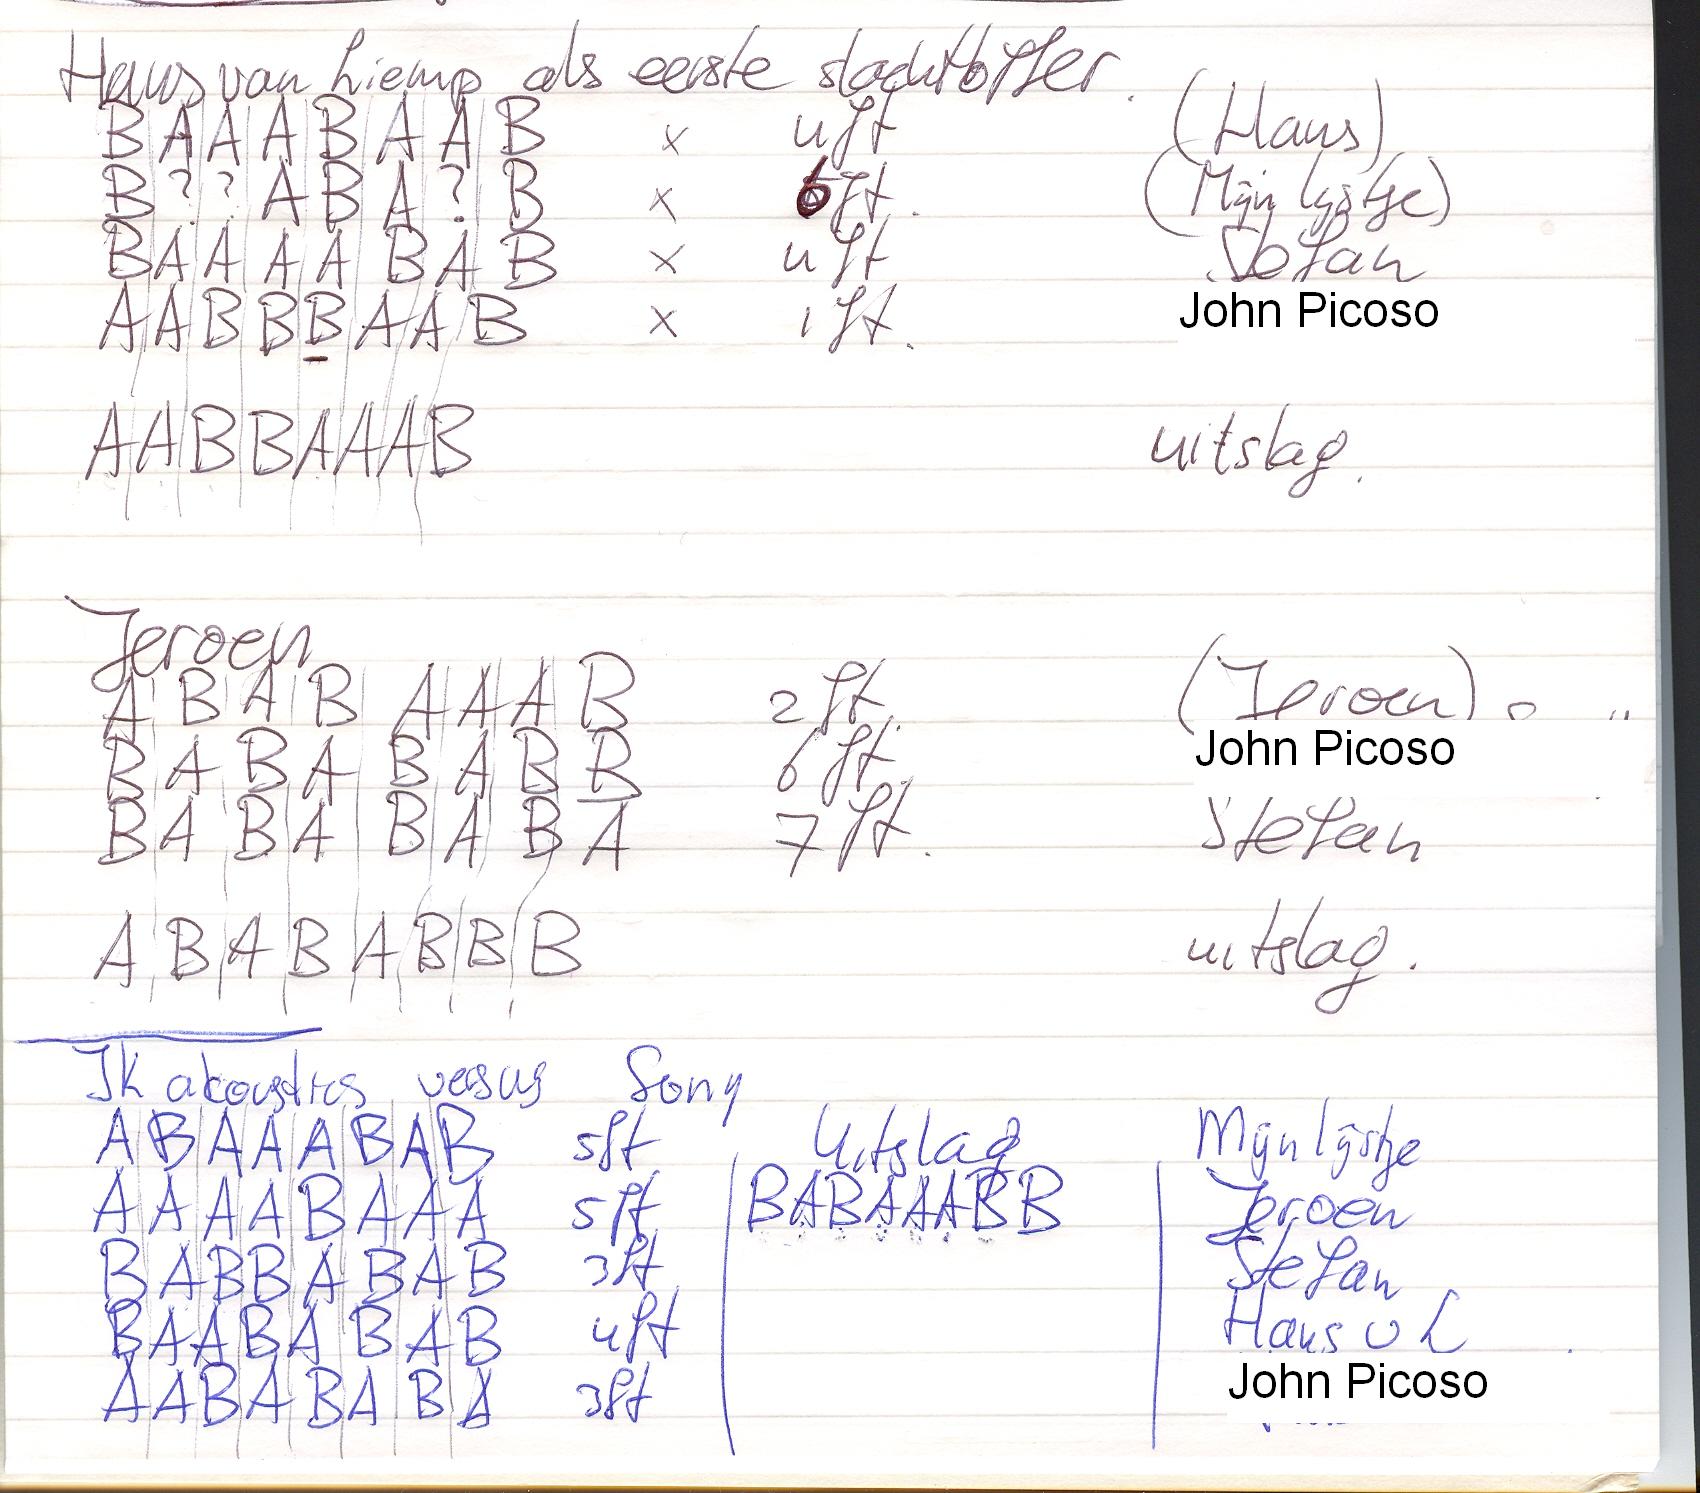 Hans van Liemp als eerste slachtoffer.
B A A A B A A B x 4ft (Hans)
B ? ? A B A ? B x 6ft. (Mijn lijstje)
B A A A A B A B x 4ft Stefan
A A B B B A A B x 1ft. John Picoso
A A B B A A A B uitslag.
Jeroen
A B A B A A A B 2ft. (Jeroen)
B A B A B A B B 6ft. John Picoso
B A B A B A B A 7ft. Stefan
A B A B A B B B uitslag.
JK akoustics versus Sony
A B A A A B A B 5ft Uitslag Mijn lijstje
A A A A B A A A 5ft B A B A A A B B Jeroen
B A B B A B A B 3ft Stefan
B A A B A B A B 4ft Hans v L
A A B A B A B A 3ft John Picoso